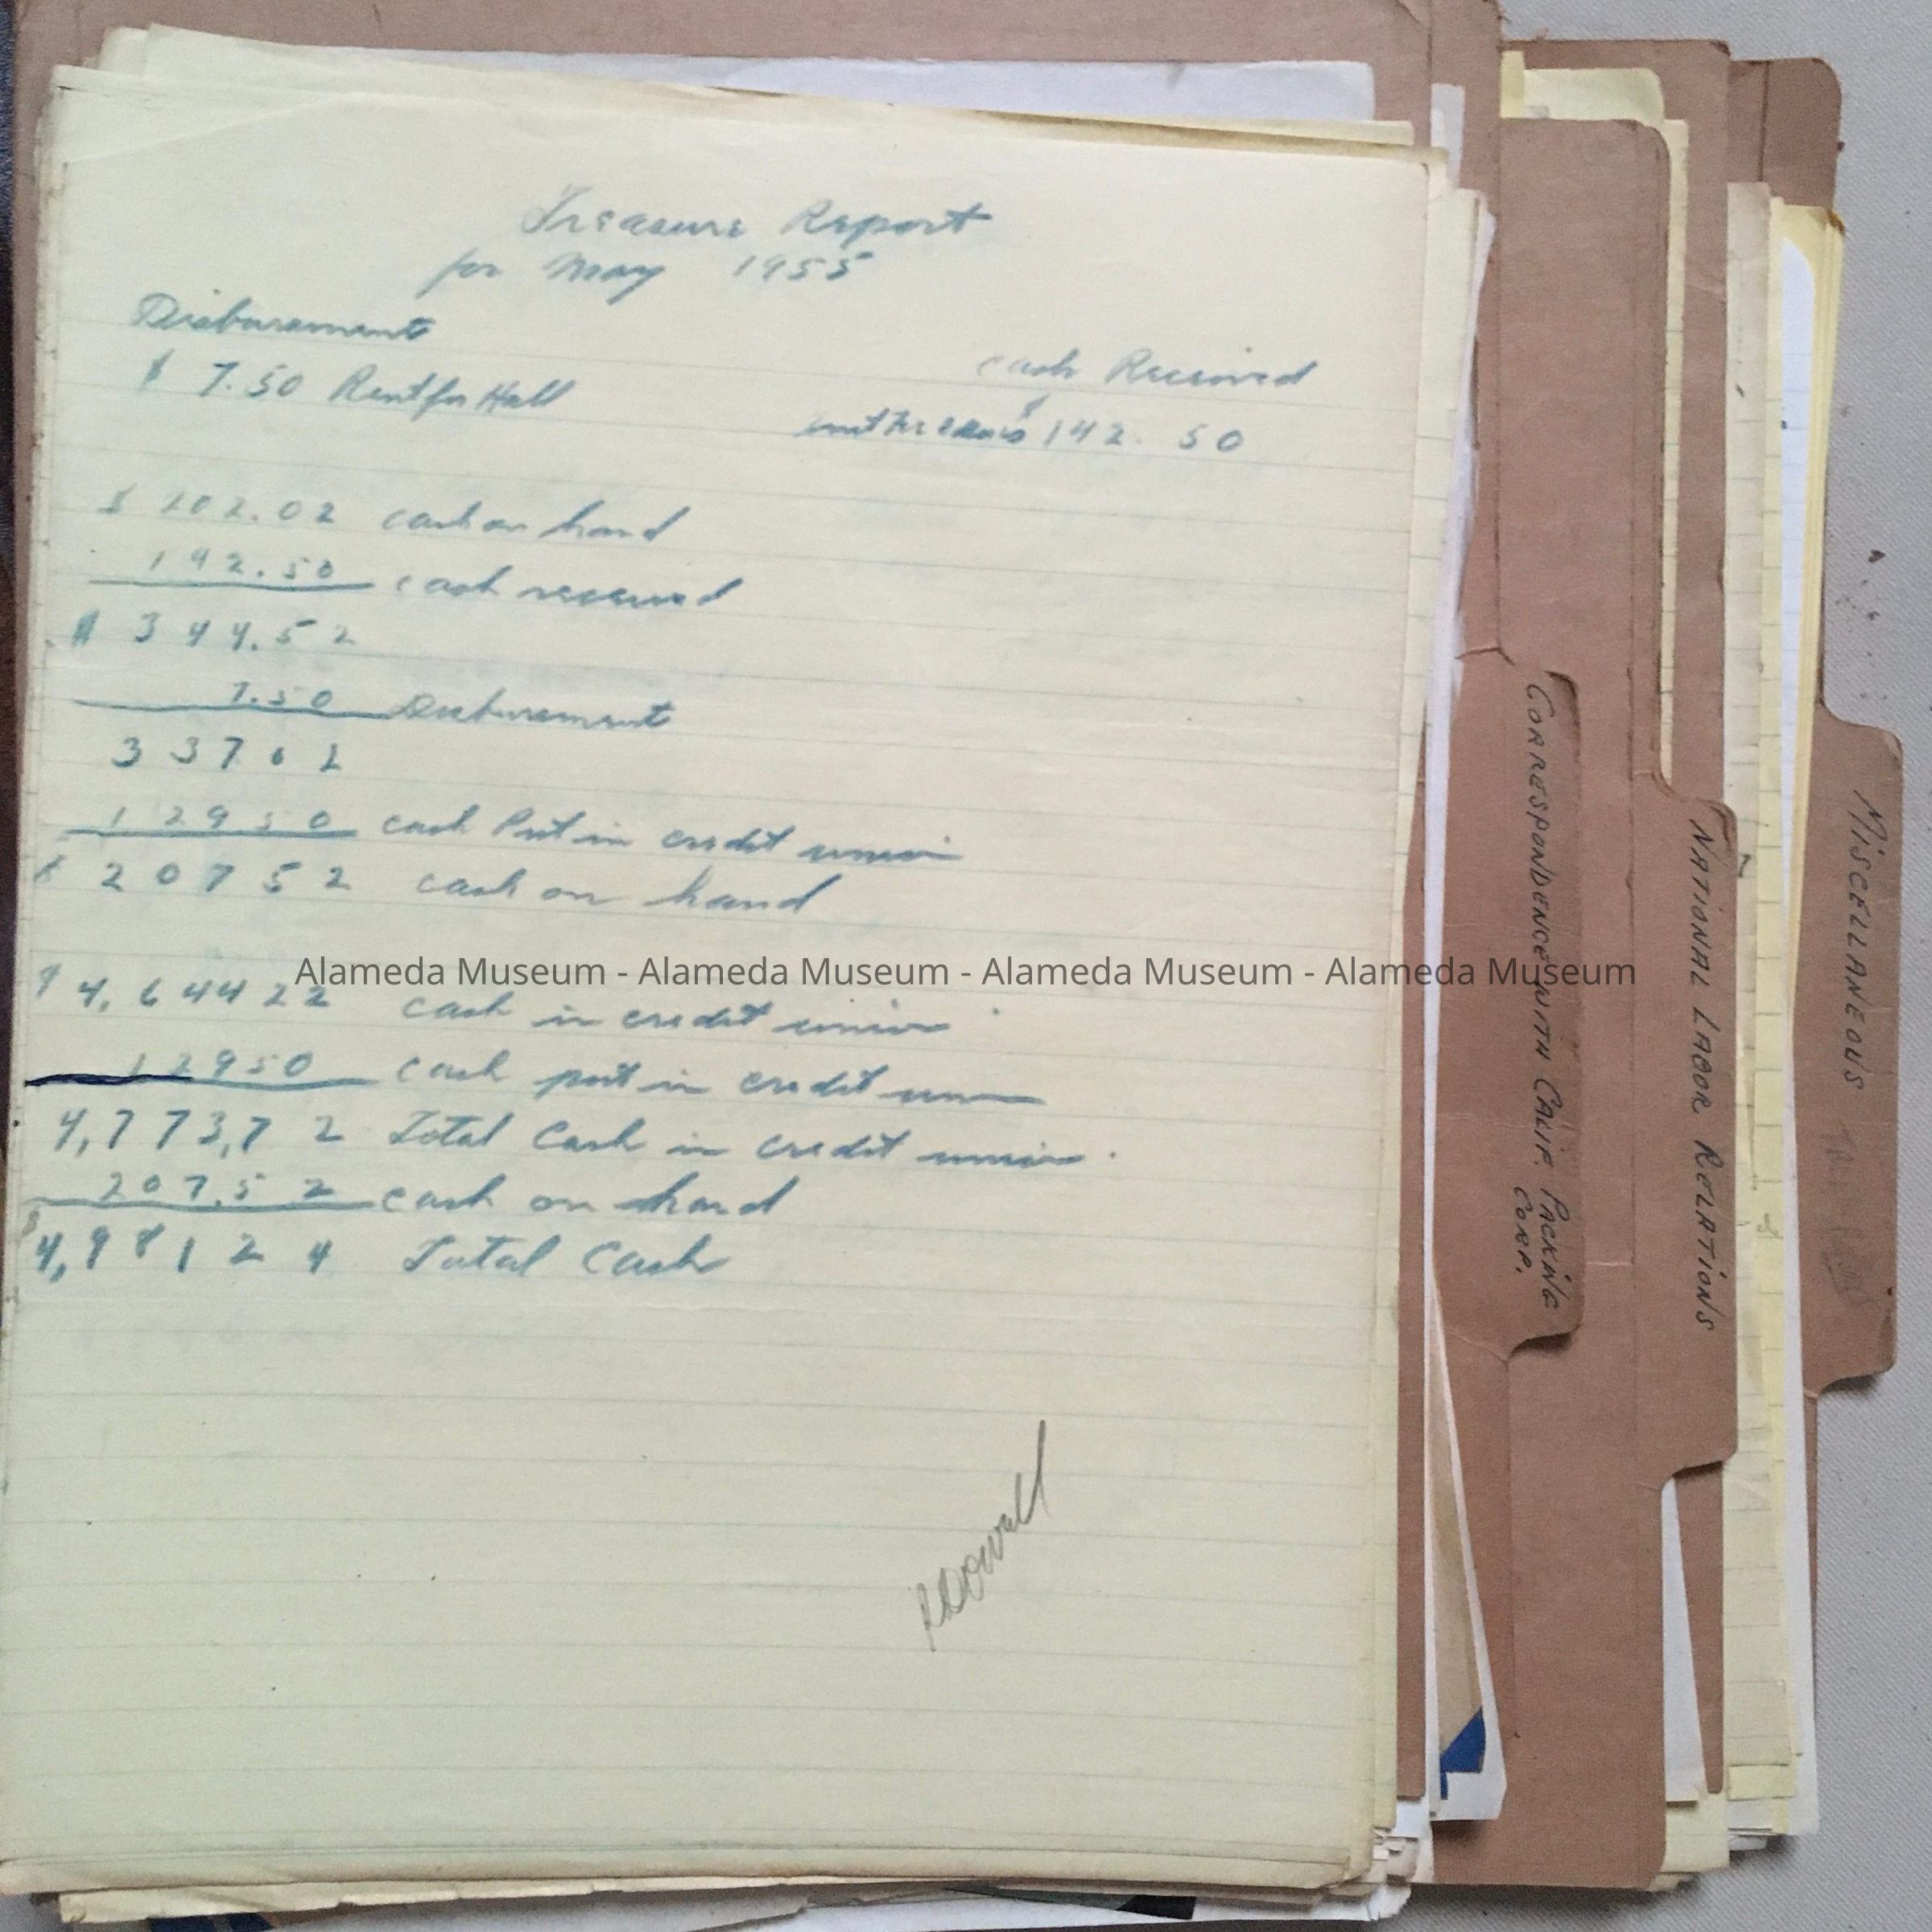 Treasure Report
for May 1955
Disbursements
$ 7.50 Rent for Hall
Cash Received
$ 142.50
$ 202.02 cash on hand
142.50 cash received
$ 344.52
7.50 Disbursements
337 02
129 50 cash Put in credit union
$ 207 52 cash on hand
$ 4,644 22 cash in credit union
129 50 cash put in credit union
4,773,72 Total Cash in credit union.
207.52 cash on hand
$ 4,981 24 Total Cash
Alameda Museum - Alameda Museum - Alameda Museum - Alameda Museum
CORRESPONDENCE WITH CALIF. PACKING
CORP.
NATIONAL LABOR RELATIONS
MISCELLANEOUS